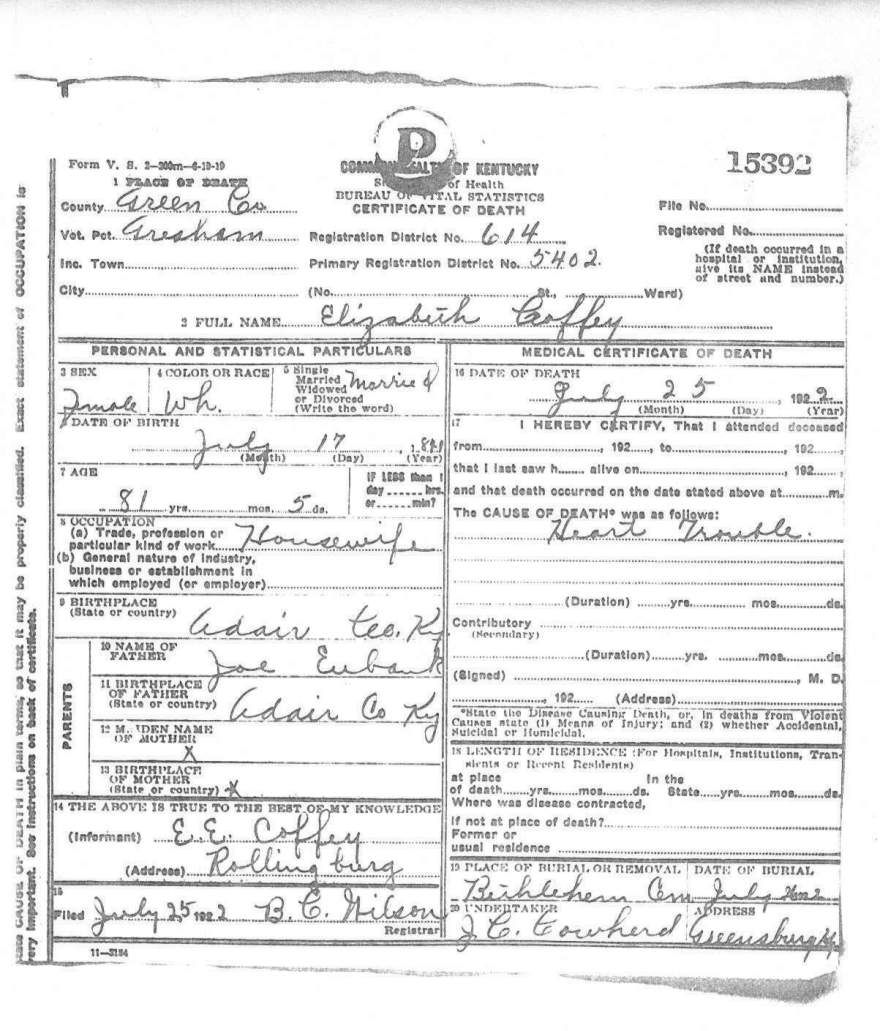 15392
Form V. S. 2—200m—6-19-19
COMMONWEALTH OF KENTUCKY
of Health
BUREAU OF VITAL STATISTICS
CERTIFICATE OF DEATH
1 PLACE OF DEATH
County Green Co
Vot. Pct. Gresham
Inc. Town
City
Registration District No. 614
Primary Registration District No. 5402.
(No. St., Ward)
File No.
Registered No.
(If death occurred in a
hospital or institution,
give its NAME instead
of street and number.)
2 FULL NAME Elizabeth Coffey
PERSONAL AND STATISTICAL PARTICULARS
3 SEX
Female
4 COLOR OR RACE
Wh.
5 Single
Married
Widowed
or Divorced
(Write the word)
Married
6 DATE OF BIRTH
July 17
(Month) (Day) (Year)
7 AGE
81 yrs. mos. 5 ds.
IF LESS than 1
day hrs.
or min?
8 OCCUPATION
(a) Trade, profession or
particular kind of work Housewife
(b) General nature of industry,
business or establishment in
which employed (or employer)
9 BIRTHPLACE
(State or country) Adair Co. Ky
PARENTS
10 NAME OF
FATHER Joe Eubank
11 BIRTHPLACE
OF FATHER
(State or country) Adair Co Ky
12 MAIDEN NAME
OF MOTHER
X
13 BIRTHPLACE
OF MOTHER
(State or country) X
14 THE ABOVE IS TRUE TO THE BEST OF MY KNOWLEDGE
(Informant) E. E. Coffey
(Address) Rollingburg
15
Filed July 25 1922 B. C. Wilson
Registrar
11—3184
MEDICAL CERTIFICATE OF DEATH
16 DATE OF DEATH
July 25, 1922
(Month) (Day) (Year)
17 I HEREBY CERTIFY, That I attended deceased
from , 192 , to , 192 ,
that I last saw h alive on , 192 ,
and that death occurred on the date stated above at m.
The CAUSE OF DEATH* was as follows:
Heart Trouble.
(Duration) yrs. mos. ds.
Contributory
(Secondary)
(Duration) yrs. mos. ds.
(Signed) , M. D.
, 192 (Address)
*State the Disease Causing Death, or, in deaths from Violent
Causes state (1) Means of Injury; and (2) whether Accidental,
Suicidal or Homicidal.
18 LENGTH OF RESIDENCE (For Hospitals, Institutions, Tran-
sients or Recent Residents)
at place In the
of death yrs. mos. ds. State yrs. mos. ds.
Where was disease contracted,
if not at place of death?
Former or
usual residence
19 PLACE OF BURIAL OR REMOVAL
Bethlehem Cem
DATE OF BURIAL
July
20 UNDERTAKER
J. C. Cowherd
ADDRESS
Greensburg Ky.
state CAUSE OF DEATH in plain terms, so that it may be properly classified. Exact statement of OCCUPATION is
very important. See instructions on back of certificate.